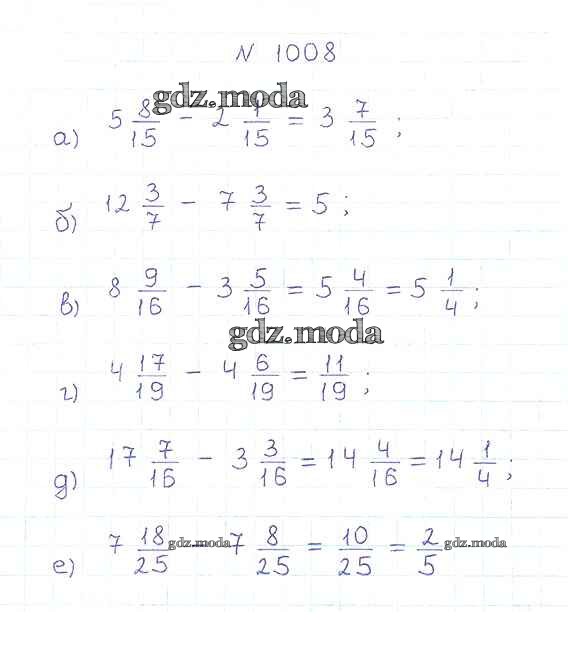 N 1008
gdz.moda
а) 5 8/15 - 2 1/15 = 3 7/15 ;
б) 12 3/7 - 7 3/7 = 5 ;
в) 8 9/16 - 3 5/16 = 5 4/16 = 5 1/4 ;
gdz.moda
г) 4 17/19 - 4 6/19 = 11/19 ;
д) 17 7/16 - 3 3/16 = 14 4/16 = 14 1/4 ;
е) 7 18/25 - 7 8/25 = 10/25 = 2/5
gdz.moda gdz.moda